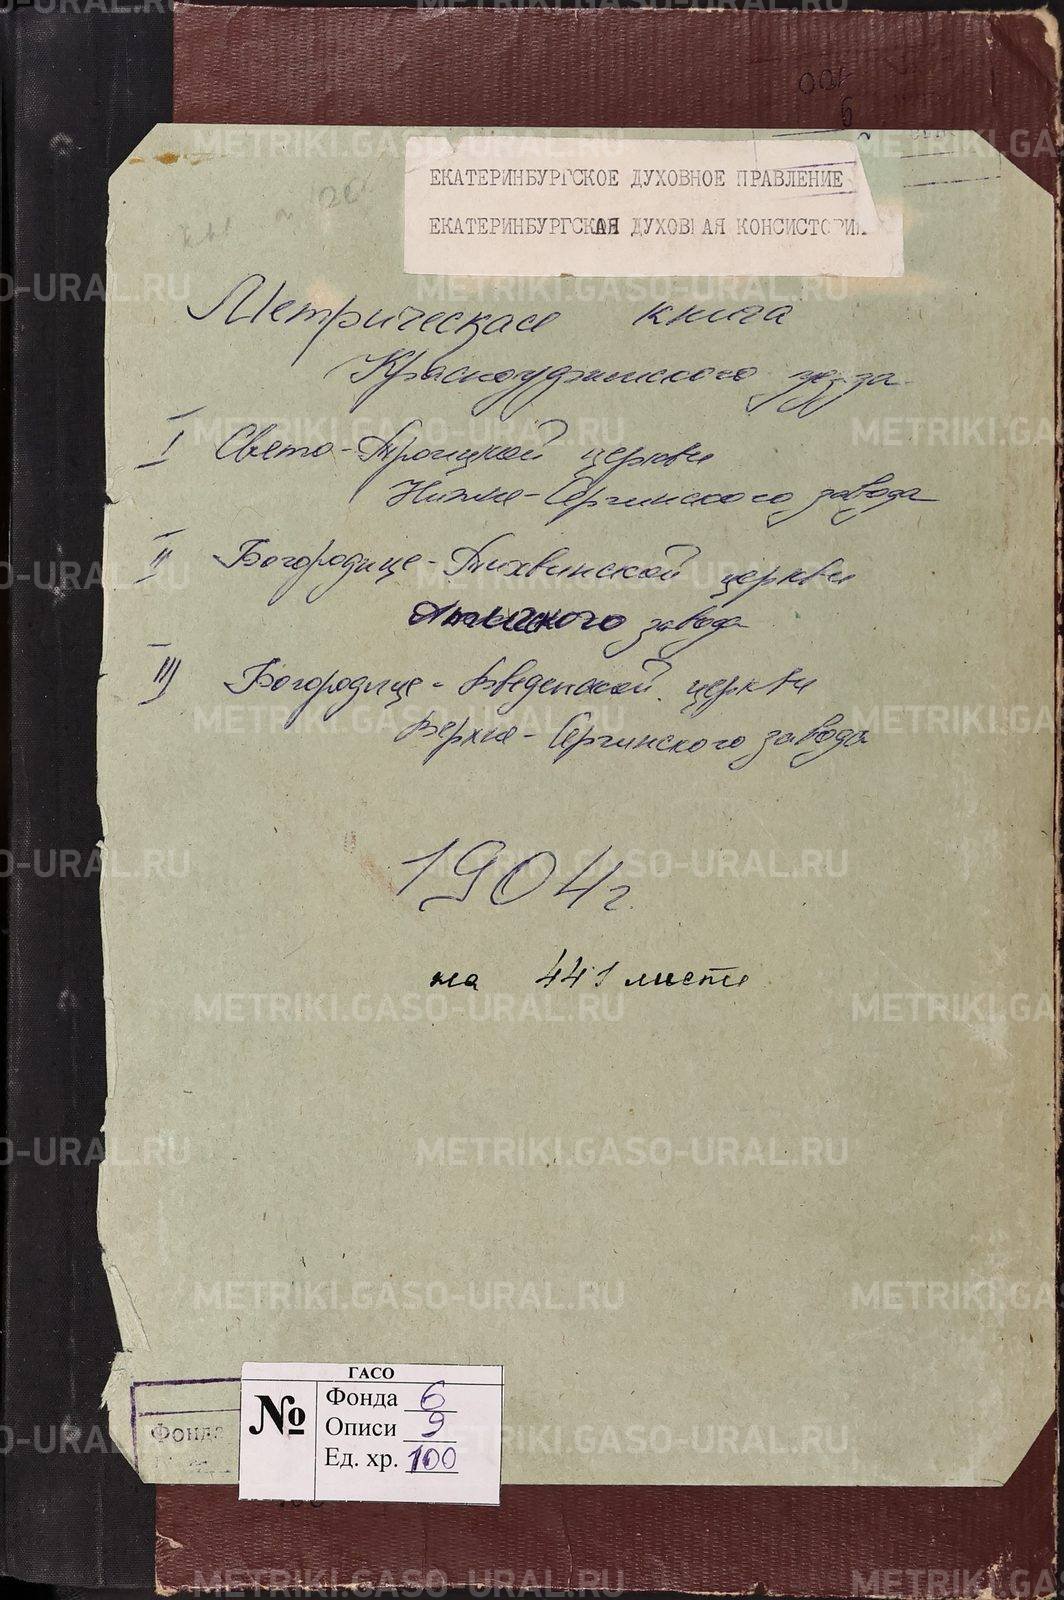 001
6
ЕКАТЕРИНБУРГСКОЕ ДУХОВНОЕ ПРАВЛЕНИЕ
ЕКАТЕРИНБУРГСКАЯ ДУХОВНАЯ КОНСИСТОРИЯ
Метрическая книга
Красноуфимского уезда
I Свято-Троицкой церкви
Нижне-Сергинского завода
II Богородице-Тихвинской церкви
Атигского завода
III Богородице-Введенской церкви
Верхне-Сергинского завода
1904 г.
на 441 листе
ГАСО
№ Фонда 6
Описи 9
Ед. хр. 100
Фонда
METRIKI.GASO-URAL.RU